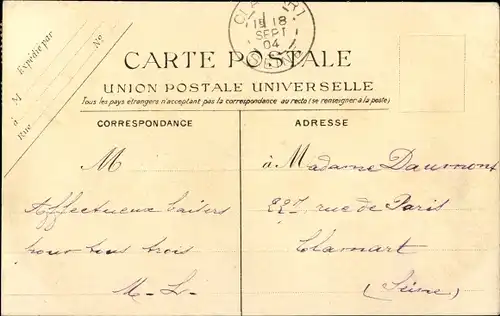 Expédié par
M
No
à
Rue
CLAMART
1E 18
SEPT
04
SEINE
CARTE POSTALE
UNION POSTALE UNIVERSELLE
Tous les pays étrangers n'acceptent pas la correspondance au recto (se renseigner à la poste)
CORRESPONDANCE
ADRESSE
M
Affectueux baisers
pour tous trois
M-L-
à Madame Daumont
227, rue de Paris
Clamart
(Seine)